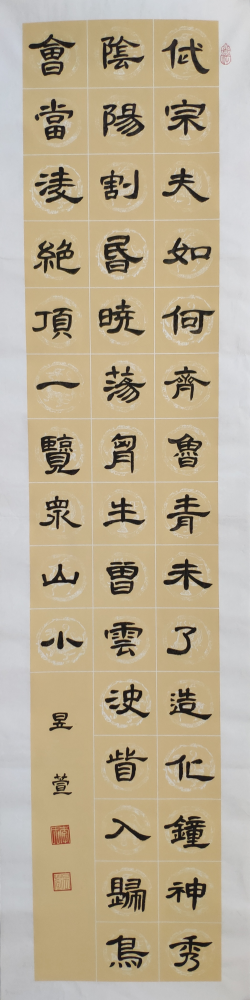 岱宗夫如何齊魯青未了造化鐘神秀
陰陽割昬曉蕩胷生曾雲決眥入歸鳥
會當淩絶頂一覽衆山小
昱萱